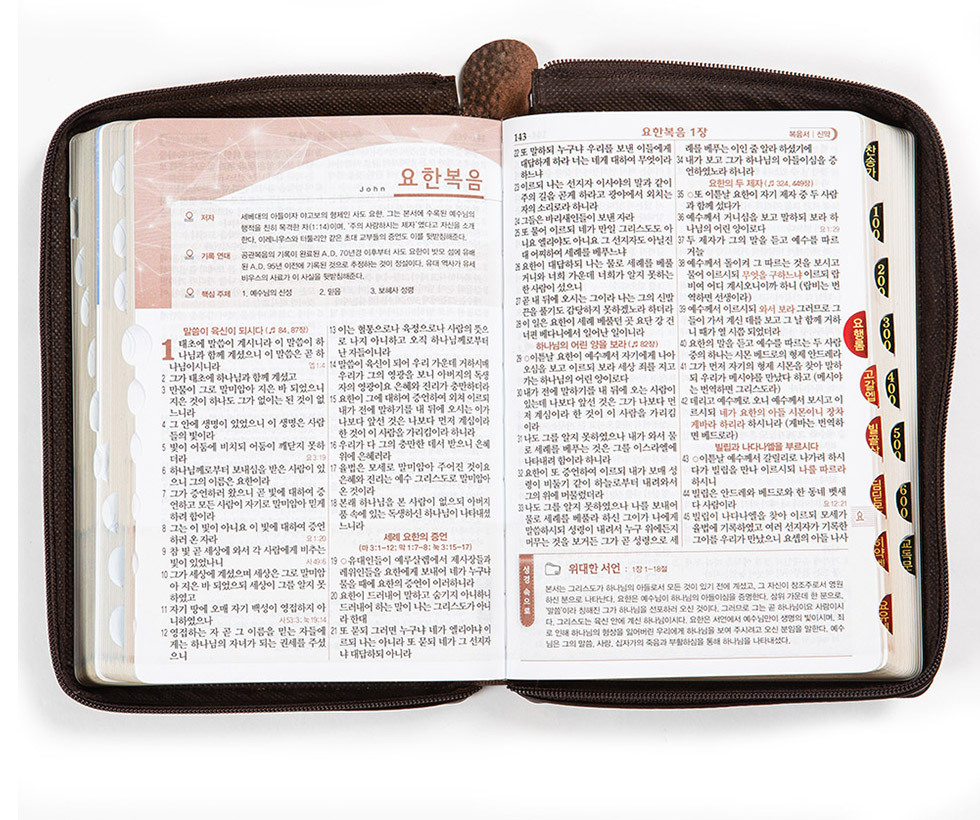 John 요한복음
저자 세베대의 아들이자 야고보의 형제인 사도 요한. 그는 본서에 수록된 예수님의
행적을 친히 목격한 자(1:14)이며, '주의 사랑하시는 제자'였다고 자신을 소개
한다. 이레니우스와 터툴리안 같은 초대 교부들의 증언도 이를 뒷받침해준다.
기록 연대 공관복음의 기록이 완료된 A.D. 70년경 이후부터 사도 요한이 밧모 섬에 유배
된 A.D. 95년 이전에 기록된 것으로 추정하는 것이 정설이다. 유대 역사가 유세
비우스의 사료가 이 사실을 뒷받침해준다.
핵심 주제 1. 예수님의 신성 2. 믿음 3. 보혜사 성령
말씀이 육신이 되시다 (♫ 84, 87장)
1 태초에 말씀이 계시니라 이 말씀이 하
나님과 함께 계셨으니 이 말씀은 곧 하
나님이시니라 요1:4
2 그가 태초에 하나님과 함께 계셨고
3 만물이 그로 말미암아 지은 바 되었으니
지은 것이 하나도 그가 없이는 된 것이 없
느니라
4 그 안에 생명이 있었으니 이 생명은 사람
들의 빛이라
5 빛이 어둠에 비치되 어둠이 깨닫지 못하
더라 요3:19
6 하나님께로부터 보내심을 받은 사람이 있
으니 그의 이름은 요한이라
7 그가 증언하러 왔으니 곧 빛에 대하여 증
언하고 모든 사람이 자기로 말미암아 믿게
하려 함이라
8 그는 이 빛이 아니요 이 빛에 대하여 증언
하러 온 자라 요1:20
9 참 빛 곧 세상에 와서 각 사람에게 비추는
빛이 있었나니 사49:6
10 그가 세상에 계셨으며 세상은 그로 말미암
아 지은 바 되었으되 세상이 그를 알지 못
하였고
11 자기 땅에 오매 자기 백성이 영접하지 아
니하였으나 사53:3; 눅19:14
12 영접하는 자 곧 그 이름을 믿는 자들에
게는 하나님의 자녀가 되는 권세를 주셨
으니
13 이는 혈통으로나 육정으로나 사람의 뜻으
로 나지 아니하고 오직 하나님께로부터
난 자들이니라
14 말씀이 육신이 되어 우리 가운데 거하시매
우리가 그의 영광을 보니 아버지의 독생
자의 영광이요 은혜와 진리가 충만하더라
15 요한이 그에 대하여 증언하여 외쳐 이르되
내가 전에 말하기를 내 뒤에 오시는 이가
나보다 앞선 것은 나보다 먼저 계심이라
한 것이 이 사람을 가리킴이라 하니라
16 우리가 다 그의 충만한 데서 받으니 은혜
위에 은혜러라
17 율법은 모세로 말미암아 주어진 것이요
은혜와 진리는 예수 그리스도로 말미암아
온 것이라
18 본래 하나님을 본 사람이 없으되 아버지
품 속에 있는 독생하신 하나님이 나타내셨
느니라
세례 요한의 증언
(마 3:1-12; 막 1:7-8; 눅 3:15-17)
19 ○유대인들이 예루살렘에서 제사장들과
레위인들을 요한에게 보내어 네가 누구냐
물을 때에 요한의 증언이 이러하니라
20 요한이 드러내어 말하고 숨기지 아니하니
드러내어 하는 말이 나는 그리스도가 아니
라 한대
21 또 묻되 그러면 누구냐 네가 엘리야냐 이
르되 나는 아니라 또 묻되 네가 그 선지자
냐 대답하되 아니라
143 요한복음 1장 복음서 | 신약
22 또 말하되 누구냐 우리를 보낸 이들에게
대답하게 하라 너는 네게 대하여 무엇이라
하느냐
23 이르되 나는 선지자 이사야의 말과 같이
주의 길을 곧게 하라고 광야에서 외치는
자의 소리로라 하니라
24 그들은 바리새인들이 보낸 자라
25 또 물어 이르되 네가 만일 그리스도도 아
니요 엘리야도 아니요 그 선지자도 아닐진
대 어찌하여 세례를 베푸느냐
26 요한이 대답하되 나는 물로 세례를 베풀
거니와 너희 가운데 너희가 알지 못하는
한 사람이 섰으니
27 곧 내 뒤에 오시는 그이라 나는 그의 신발
끈을 풀기도 감당하지 못하겠노라 하더라
28 이 일은 요한이 세례 베풀던 곳 요단 강 건
너편 베다니에서 일어난 일이니라
하나님의 어린 양을 보라 (♫ 82장)
29 ○이튿날 요한이 예수께서 자기에게 나아
오심을 보고 이르되 보라 세상 죄를 지고
가는 하나님의 어린 양이로다
30 내가 전에 말하기를 내 뒤에 오는 사람이
있는데 나보다 앞선 것은 그가 나보다 먼
저 계심이라 한 것이 이 사람을 가리킴
이라
31 나도 그를 알지 못하였으나 내가 와서 물
로 세례를 베푸는 것은 그를 이스라엘에
나타내려 함이라 하니라
32 요한이 또 증언하여 이르되 내가 보매 성
령이 비둘기 같이 하늘로부터 내려와서
그의 위에 머물렀더라
33 나도 그를 알지 못하였으나 나를 보내어
물로 세례를 베풀라 하신 그이가 나에게
말씀하시되 성령이 내려서 누구 위에든지
머무는 것을 보거든 그가 곧 성령으로 세
례를 베푸는 이인 줄 알라 하셨기에
34 내가 보고 그가 하나님의 아들이심을 증
언하였노라 하니라
요한의 두 제자 (♫ 324, 449장)
35 ○또 이튿날 요한이 자기 제자 중 두 사람
과 함께 섰다가
36 예수께서 거니심을 보고 말하되 보라 하
나님의 어린 양이로다 요1:29
37 두 제자가 그의 말을 듣고 예수를 따르
거늘
38 예수께서 돌이켜 그 따르는 것을 보시고
물어 이르시되 무엇을 구하느냐 이르되 랍
비여 어디 계시오니이까 하니 (랍비는 번
역하면 선생이라)
39 예수께서 이르시되 와서 보라 그러므로 그
들이 가서 계신 데를 보고 그 날 함께 거하
니 때가 열 시쯤 되었더라
40 요한의 말을 듣고 예수를 따르는 두 사람
중의 하나는 시몬 베드로의 형제 안드레라
41 그가 먼저 자기의 형제 시몬을 찾아 말하
되 우리가 메시야를 만났다 하고 (메시야
는 번역하면 그리스도라)
42 데리고 예수께로 오니 예수께서 보시고 이
르시되 네가 요한의 아들 시몬이니 장차
게바라 하리라 하시니라 (게바는 번역하
면 베드로라)
빌립과 나다나엘을 부르시다
43 ○이튿날 예수께서 갈릴리로 나가려 하시
다가 빌립을 만나 이르시되 나를 따르라
하시니
44 빌립은 안드레와 베드로와 한 동네 벳새
다 사람이라 요12:21
45 빌립이 나다나엘을 찾아 이르되 모세가
율법에 기록하였고 여러 선지자가 기록한
그이를 우리가 만났으니 요셉의 아들 나사
성경 속으로
위대한 서언 : 1장 1-18절
본서는 그리스도가 하나님의 아들로서 모든 것이 있기 전에 계셨고, 그 자신이 창조주로서 영원
하신 분으로 나타난다. 요한은 예수님이 하나님의 아들이심을 증명한다. 삼위 가운데 한 분으로,
'말씀'이라 칭해진 그가 하나님을 선포하러 오신 것이다. 그러므로 그는 곧 하나님이요 사람이시
다. 그리스도는 육신 안에 계신 하나님이시다. 요한은 서언에서 예수님만이 생명의 빛이시며, 죄
로 인해 하나님의 형상을 잃어버린 우리에게 하나님을 보여 주시려고 오신 분임을 말한다. 예수
님은 그의 말씀, 사랑, 십자가의 죽음과 부활하심을 통해 하나님을 나타내셨다.
찬송가
100
200
300
요행롬
고갈엡
500
빌골살
600
교독문
요